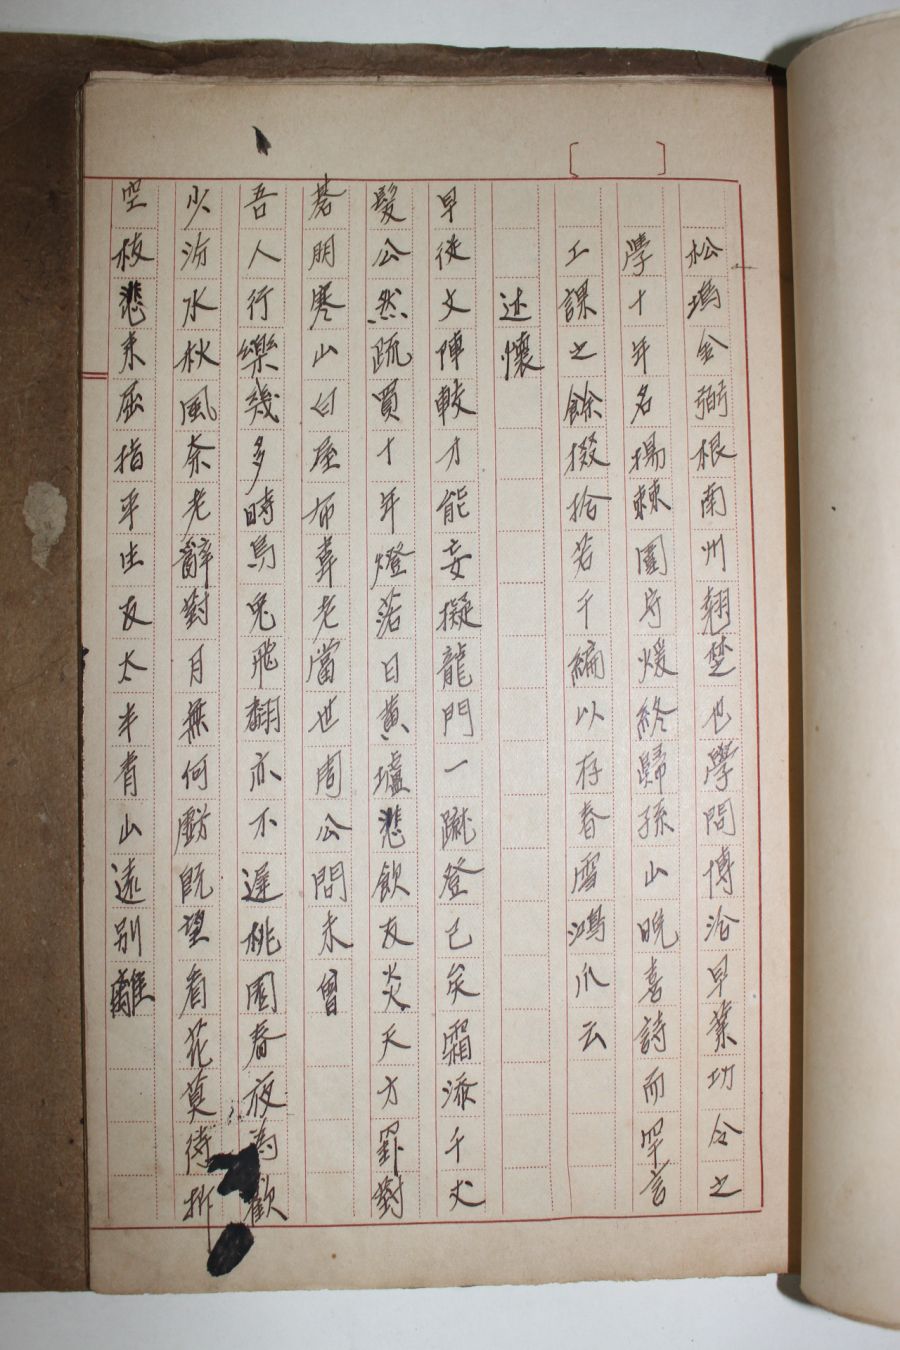 松塢金弼根南州翹楚也學問博洽早業功令之
學十年名揚棘圍步煖終歸孫山晩喜詩而罕言
工課之餘掇拾若干編以存春雪鴻爪云
述懷
早從文陣較才能妄擬龍門一蹴登已矣霜添千丈
髮公然疏買十年燈落日黃壚悲飮友炎天方罫對
碁朋寒山白屋布韋老當世周公問未曾
吾人行樂幾多時烏兎飛翻亦不遲桃園春夜爲歡
少汾水秋風奈老辭對月無何虧旣望看花莫待折
空枝悲來屈指平生友太半靑山遠別離